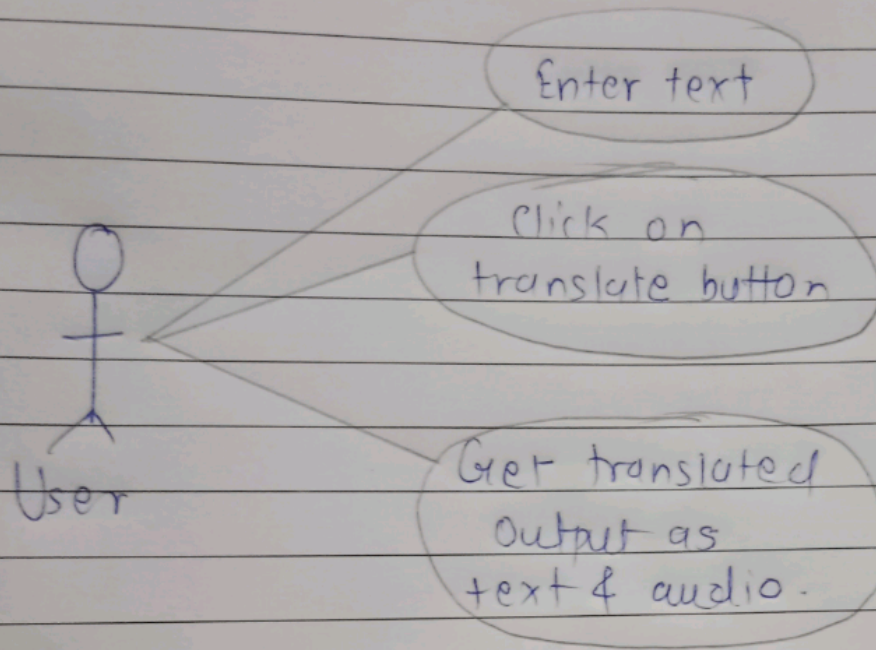 Enter text
Click on
translate button
User
Get translated
Output as
text & audio.